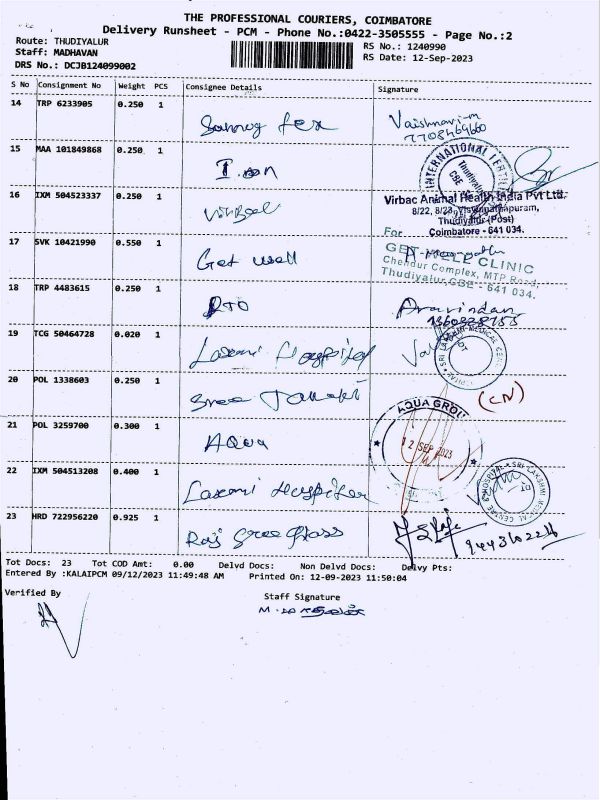 THE PROFESSIONAL COURIERS, COIMBATORE
Delivery Runsheet - PCM - Phone No.:0422-3505555 - Page No.:2
Route: THUDIYALUR
Staff: MADHAVAN
DRS No.: DCJB124099002
RS No.: 1240990
RS Date: 12-Sep-2023
S No Consignment No Weight PCS Consignee Details Signature
14 TRP 6233905 0.250 1
Vaishnavi-m
7708469660
15 MAA 101849868 0.250 1
INTERNATIONAL
Thudiyalur
CBE
16 IXM 504523337 0.250 1
Virbac Animal Health India Pvt Ltd.
8/22, 8/23,
Thudiyalur (Post)
Coimbatore - 641 034.
For
17 SVK 10421990 0.550 1 Get well
GET WELL CLINIC
Chendur Complex, MTP Road,
Thudiyalur, CBE - 641 034.
18 TRP 4483615 0.250 1 RTO Aravindan
19 TCG 50464728 0.020 1 Laxmi Hospital
20 POL 1338603 0.250 1 Sree
(CN)
21 POL 3259700 0.300 1 AQua
AQUA GROUP
12 SEP 2023
22 IXM 504513208 0.400 1 Laxmi Hospital
HOSPITAL * SRI LAKSHMI MEDICAL CENTRE &
23 HRD 722956220 0.925 1 Raj Sree Glass
Tot Docs: 23 Tot COD Amt: 0.00 Delvd Docs: Non Delvd Docs: Delvy Pts:
Entered By :KALAIPCM 09/12/2023 11:49:48 AM Printed On: 12-09-2023 11:50:04
Verified By
Staff Signature